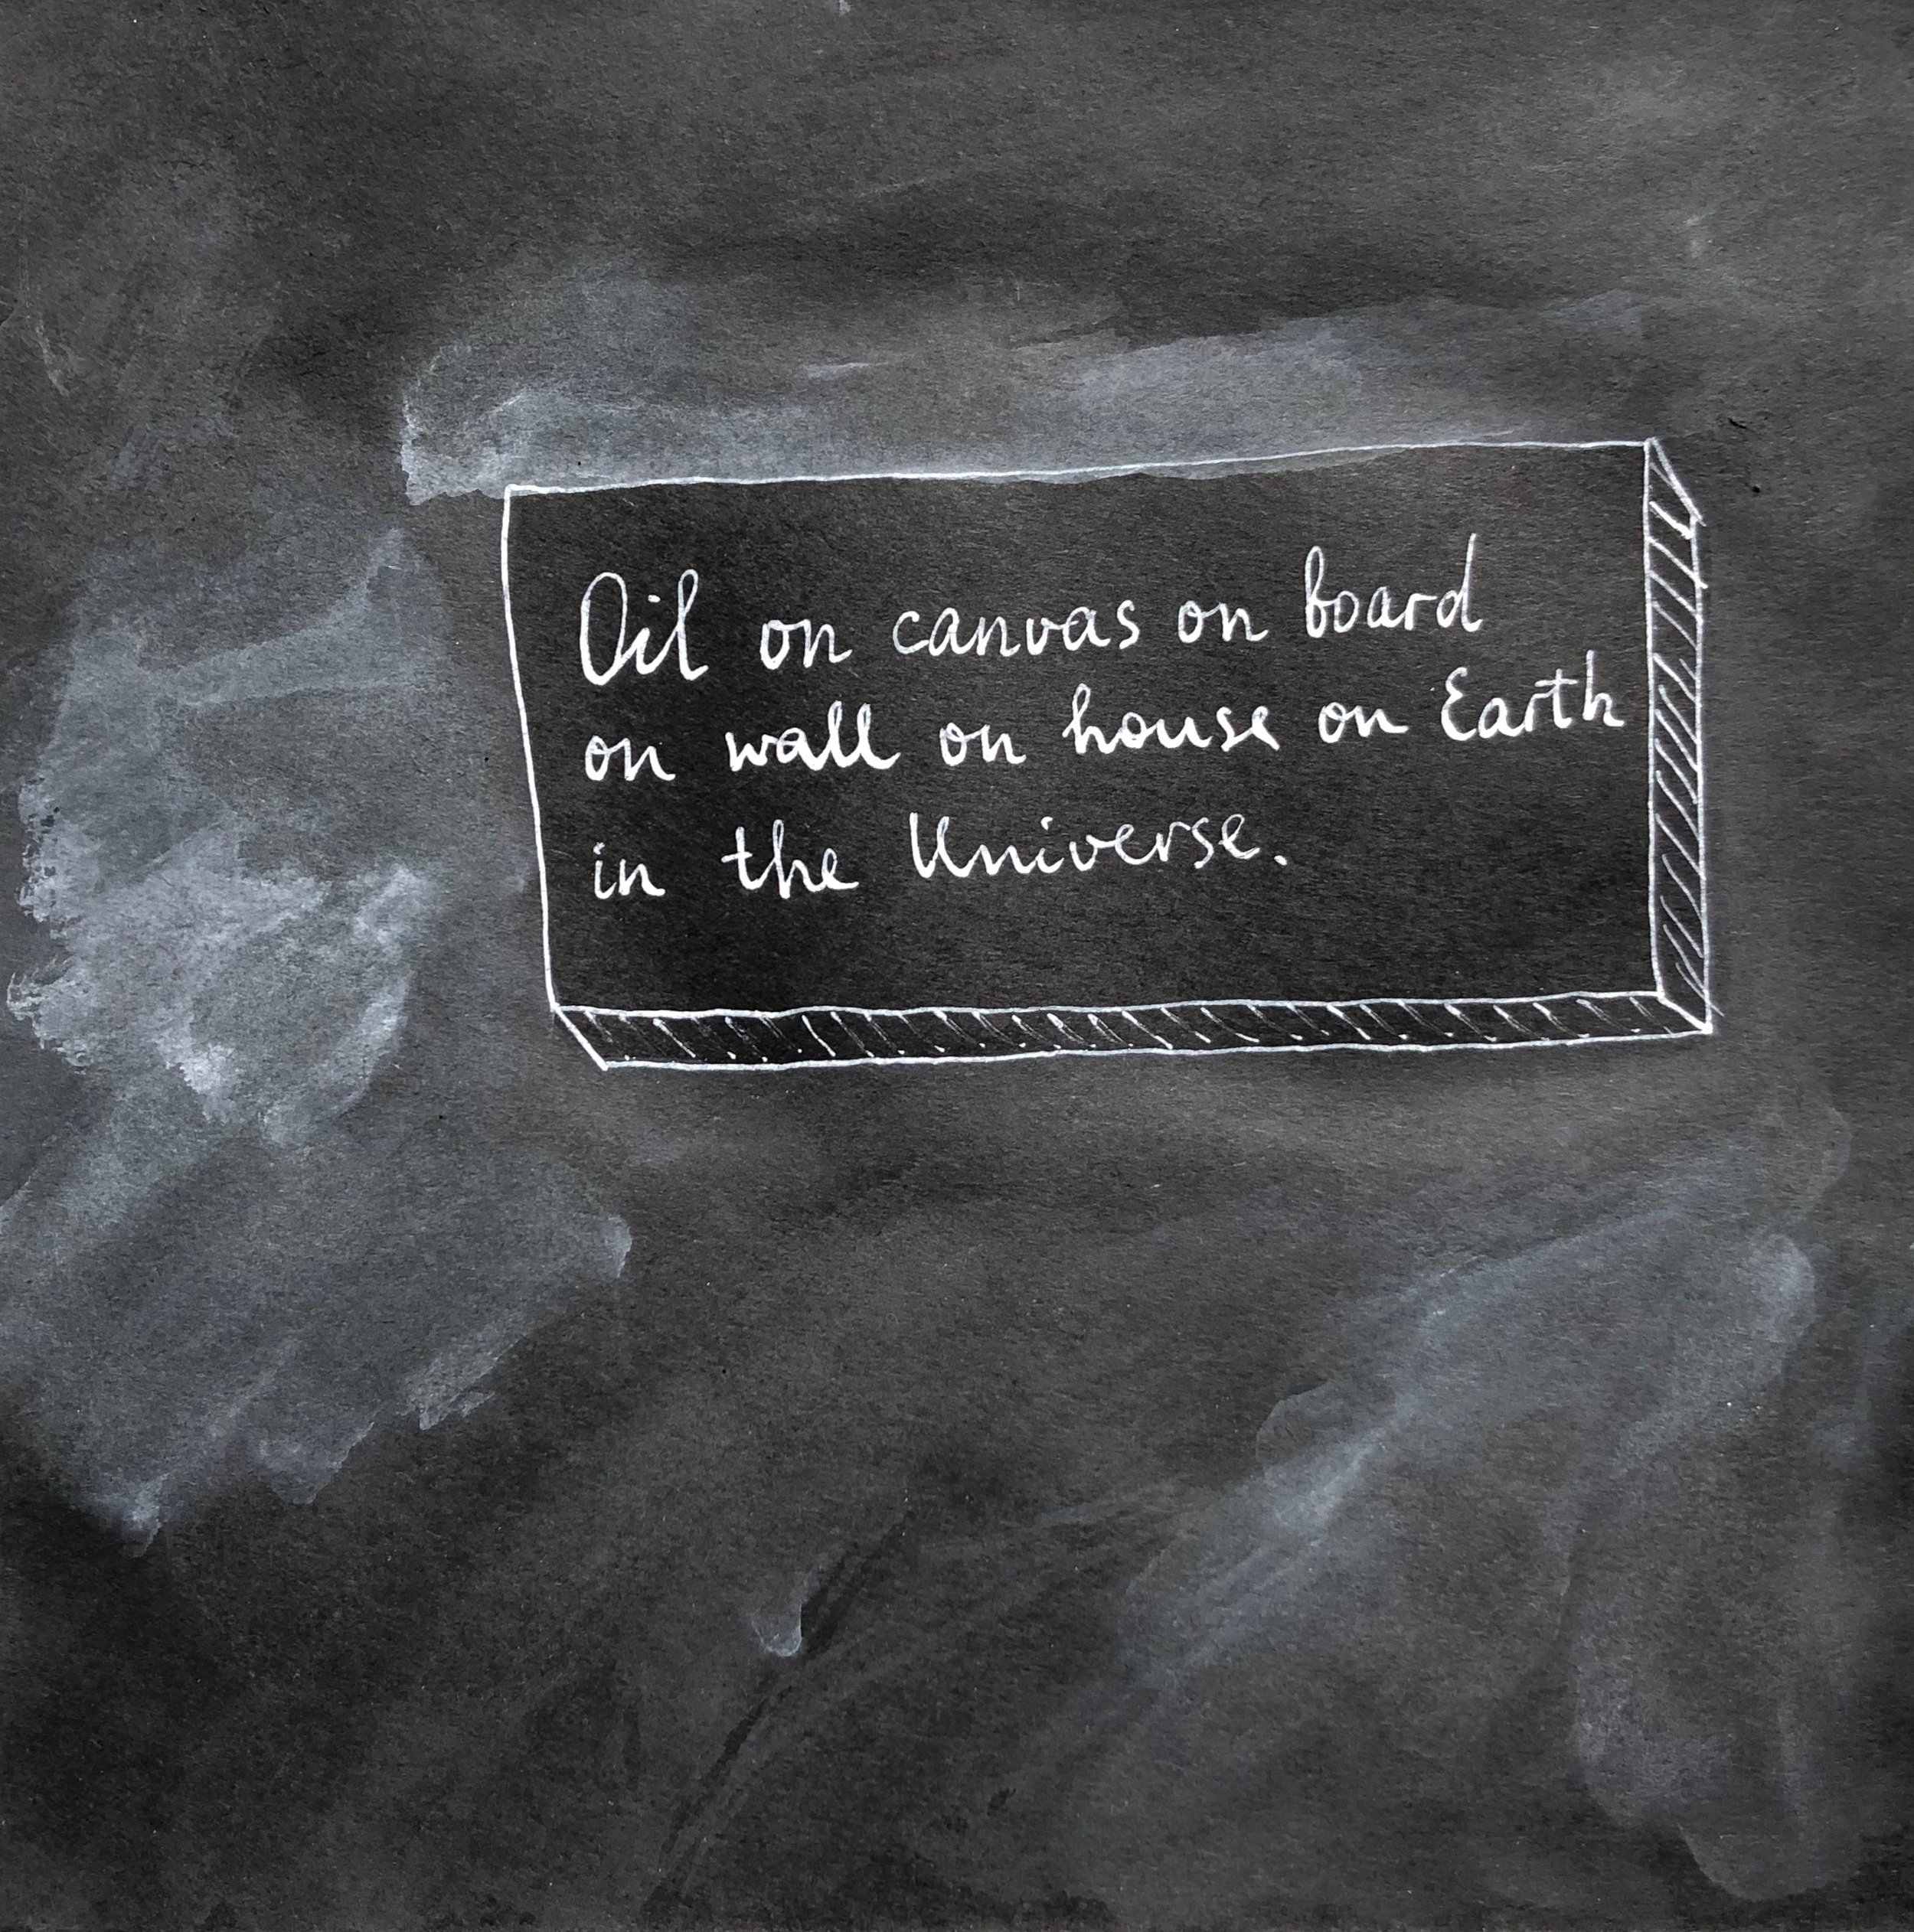 Oil on canvas on board
on wall on house on Earth
in the Universe.